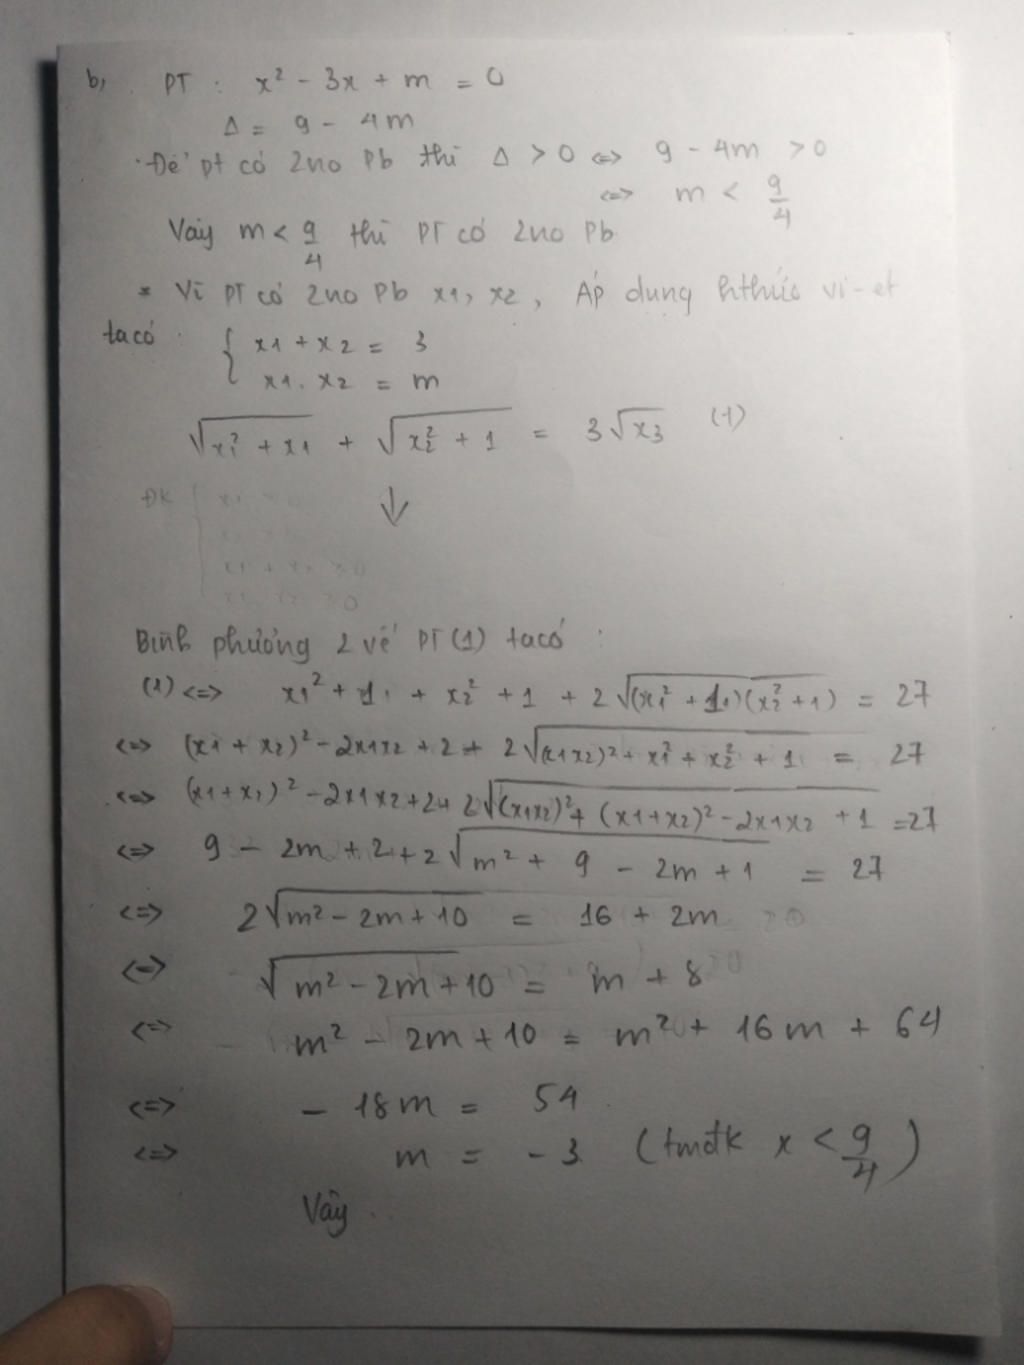 b, PT : x² - 3x + m = 0
Δ = 9 - 4m
Để pt có 2no Pb thì Δ > 0 <=> 9 - 4m > 0
<=> m < 9/4
Vậy m < 9/4 thì PT có 2no Pb
* Vì PT có 2no Pb x1, x2, Áp dụng hthức vi-et
ta có
{ x1 + x2 = 3
x1. x2 = m
√(x1² + x1) + √(x2² + 1) = 3√x3 (1)
ĐK
Bình phương 2 vế PT (1) ta có :
(1) <=> x1² + 1 + x2² + 1 + 2√((x1² + 1)(x2² + 1)) = 27
<=> (x1 + x2)² - 2x1x2 + 2 + 2√((x1x2)² + x1² + x2² + 1) = 27
<=> (x1+x2)² - 2x1x2 + 2 + 2√((x1x2)² + (x1+x2)² - 2x1x2 + 1) = 27
<=> 9 - 2m + 2 + 2√(m² + 9 - 2m + 1) = 27
<=> 2√(m² - 2m + 10) = 16 + 2m
<=> √(m² - 2m + 10) = m + 8
<=> m² - 2m + 10 = m² + 16m + 64
<=> - 18m = 54
<=> m = - 3 (tmđk x < 9/4)
Vậy